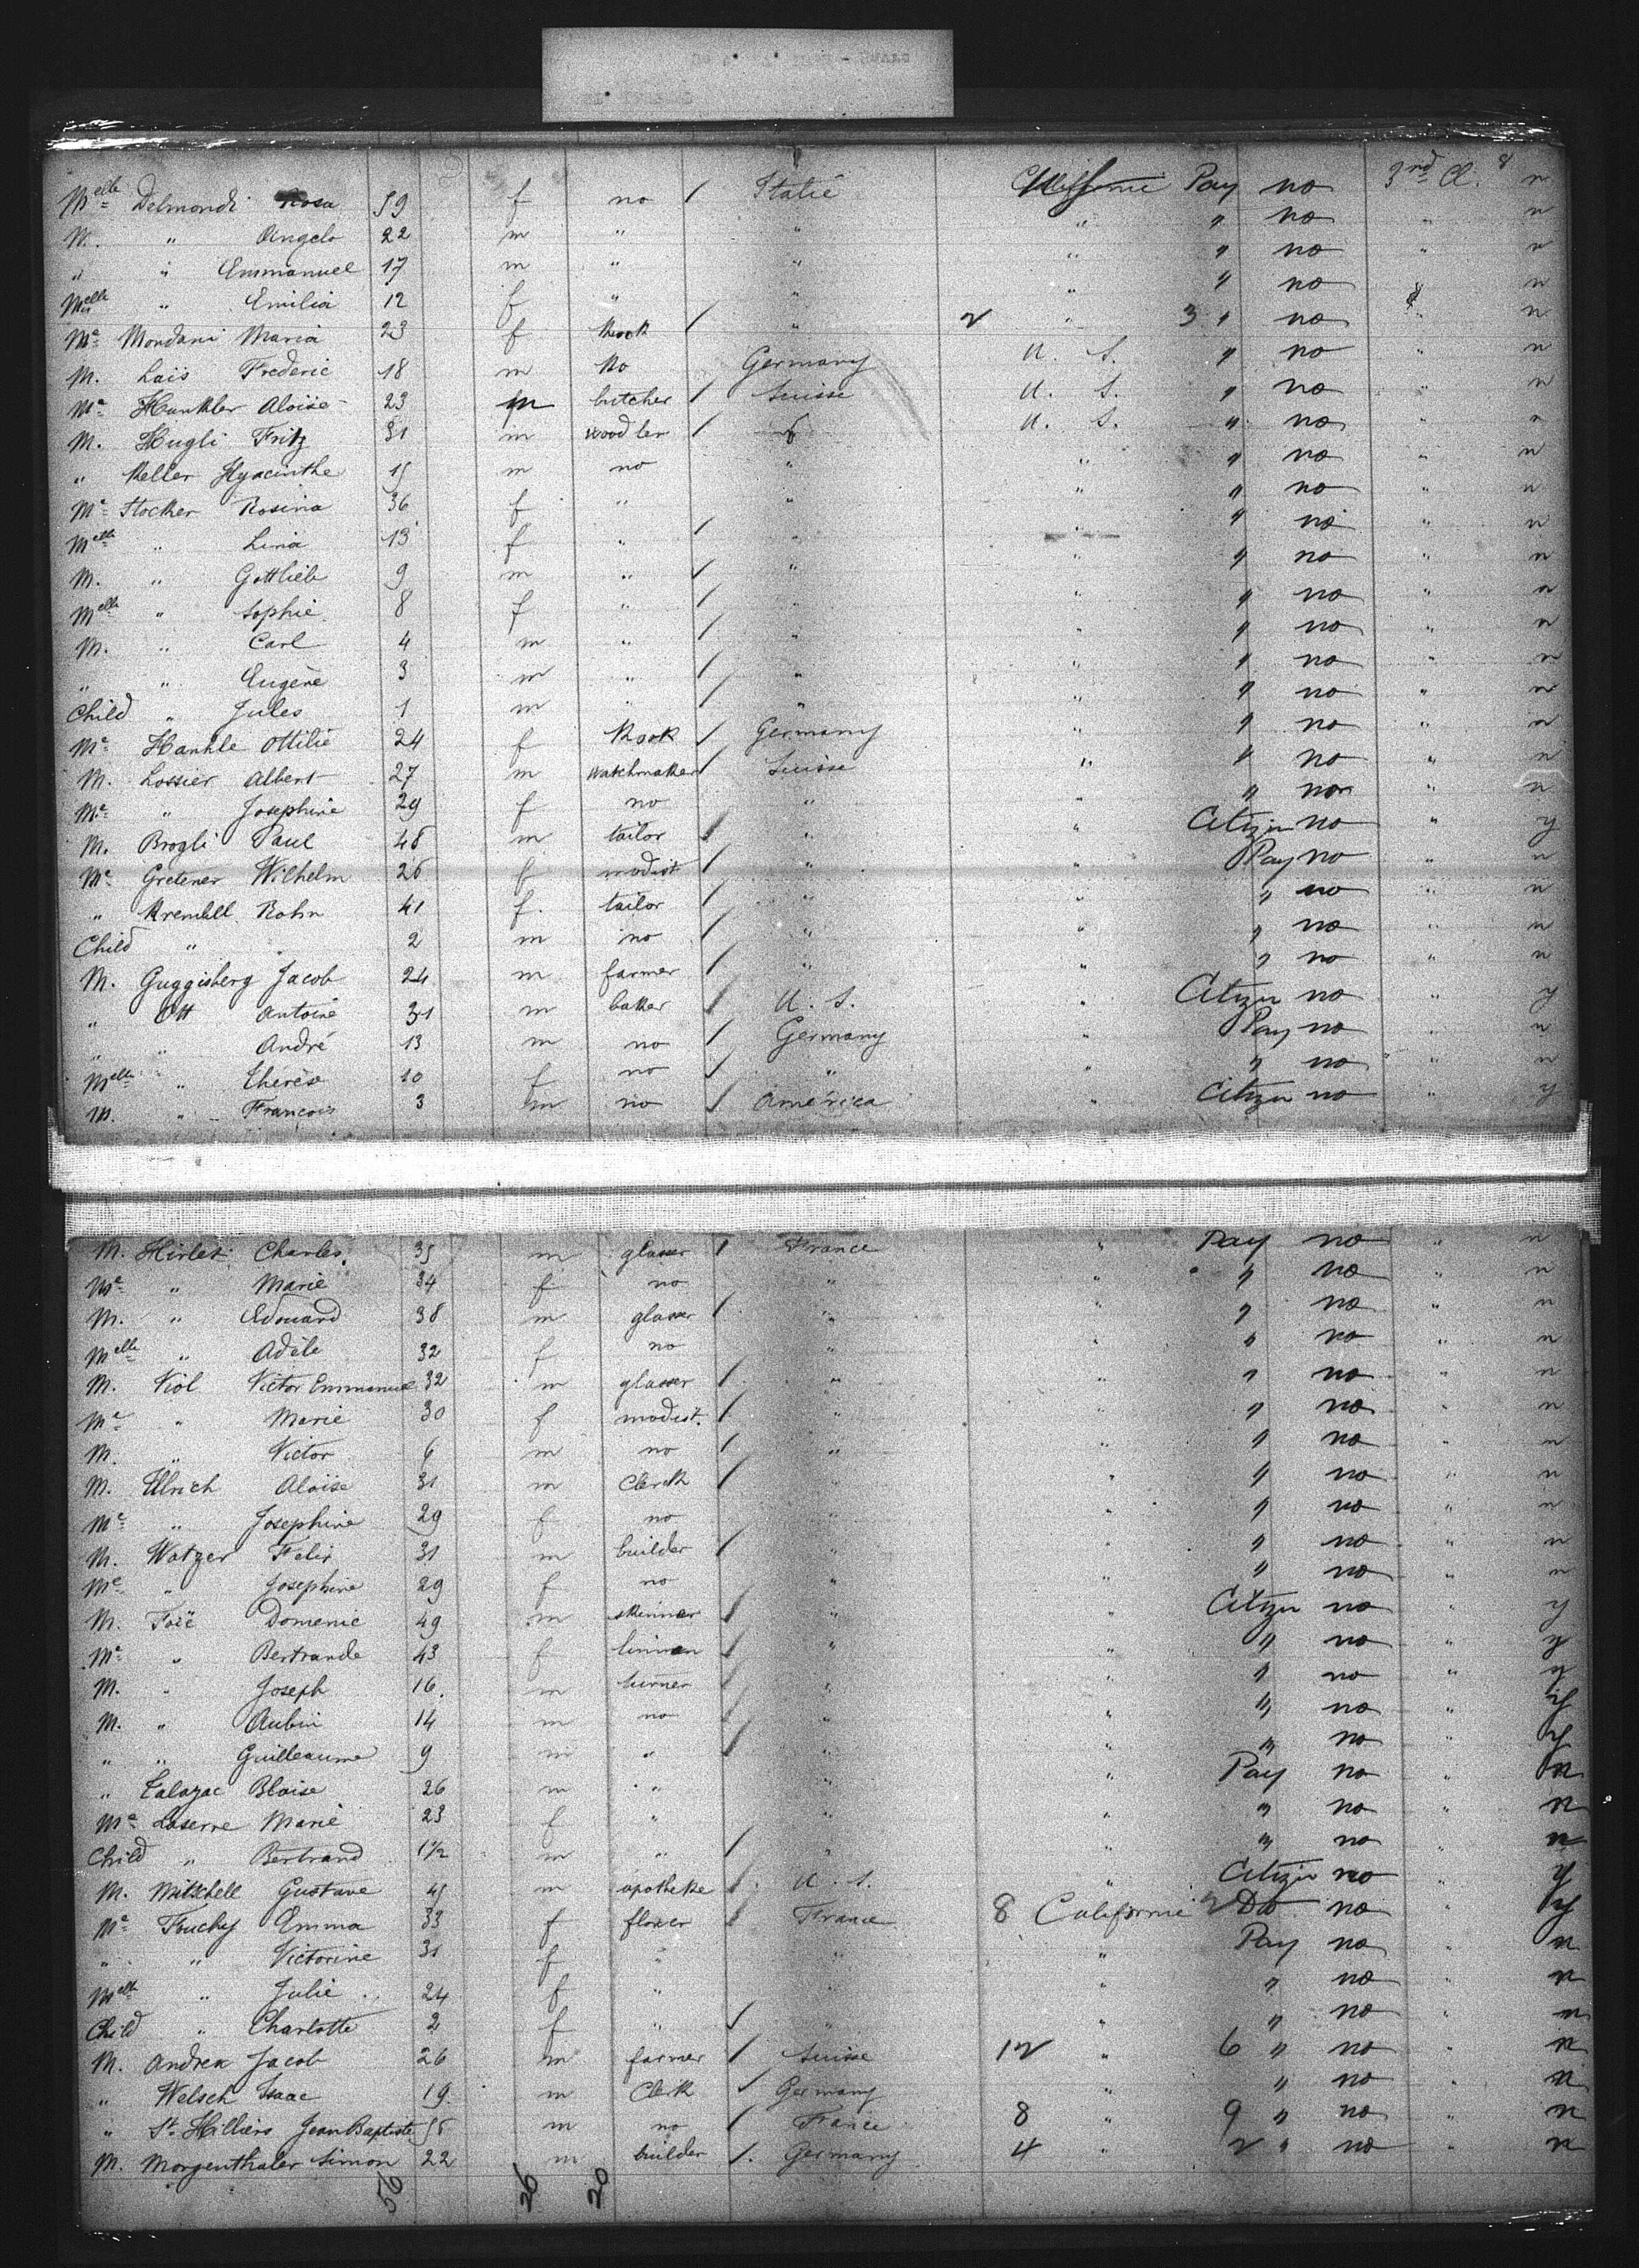 Melle Delmondi Rosa 59 f no / Italie Californie Pay no 3rd Cl. n
M. " Angelo 22 m " " " " no " n
" " Emmanuel 17 m " " " " no " n
Melle " Emilia 12 f " " " " no n
Me Mondani Maria 23 f Kook / " 2 " 3 " no " n
M. Laïs Frederic 18 m No Germany U. S. " no " n
Me Hunkler Aloïse 23 m butcher / Suisse U. S. " no " n
M. Hugli Fritz 31 m / U. S. " no " n
" Keller Hyacinthe 15 m no " " " no " n
Me Stocker Rosina 36 f " " " " no " n
Melle " Lina 13 f " / " " " no " n
M. " Gottlieb 9 m " / " " " no n
Melle " Sophie 8 f " / " " " no " n
M. " Carl 4 m " / " " " no " n
" " Eugène 3 m " / " " " no " n
Child " Jules 1 m " / " " " no " n
Me Hankle Ottilie 24 f Kook / Germany " " no " n
M. Lossier Albert 27 m watchmaker / Suisse " " no " n
Me " Josephine 29 f no " " " no n
M. Brogli Paul 48 m tailor / " " Citizn no " y
Me Gretener Wilhelm 26 f modist / " " Pay no " n
" Rohn 41 f. tailor / " " " no " n
Child " 2 m no / " " " no n
M. Guggisberg Jacob 24 m farmer / " " " no " n
" Ott Antoine 31 m baker / U. S. " Citizn no " y
" " André 13 m no / Germany " Pay no " n
Melle " Thérèse 10 f no / " " " no " n
M. " François 3 m no / América " Citizn no " y
M. Hirlet Charles 35 m glaser / France " Pay no " n
Me " Marie 34 f no " " " no " n
M. " Edouard 38 m glaser / " " " no " n
Melle " Adèle 32 f no " " " no " n
M. Viol Victor Emmanuel 32 m glaser / " " " no " n
Me " Marie 30 f modist. / " " " no " n
M. " Victor 6 m no / " " " no " n
M. Ullrich Aloïse 31 m Clerck / " " " no " n
Me " Josephine 29 f no " " " no " n
M. Watzer Felix 31 m builder / " " " no " n
Me " Josephine 29 f no " " " no " n
M. Foïe Domenic 49 m skinner / " " Citizn no " y
Me " Bertrande 43 f / " " " no " y
M. " Joseph 16 m turner / " " " no " y
M. " Aubin 14 m no / " " " no " y
" " Guilleaume 9 m " / " " " no " y
" Talazac Blaise 26 m " " " Pay no " n
Me Laserre Marie 23 f " " " " no " n
Child " Bertrand 1 1/2 m " / " " " no " n
M. Mitschell Gustave 45 m apotheke / U. S. " Citizn no " y
Me Fouchy Emma 33 f / France 8 Californie 2 Do no " y
" " Victorine 31 f " " " Pay no " n
Melle " Julie 24 f " " " " no " n
Child " Charlotte 2 f " / " " " no " n
M. Andrea Jacob 26 m farmer / Suisse 12 " 6 " no " n
" Welsch Isaac 19 m Clerk / Germany " " no " n
" St. Hilliers Jean Baptiste m no / France 8 " 9 " no " n
M. Morgenthaler Simon 22 m builder / Germany 4 " 2 " no " n
56 26 20